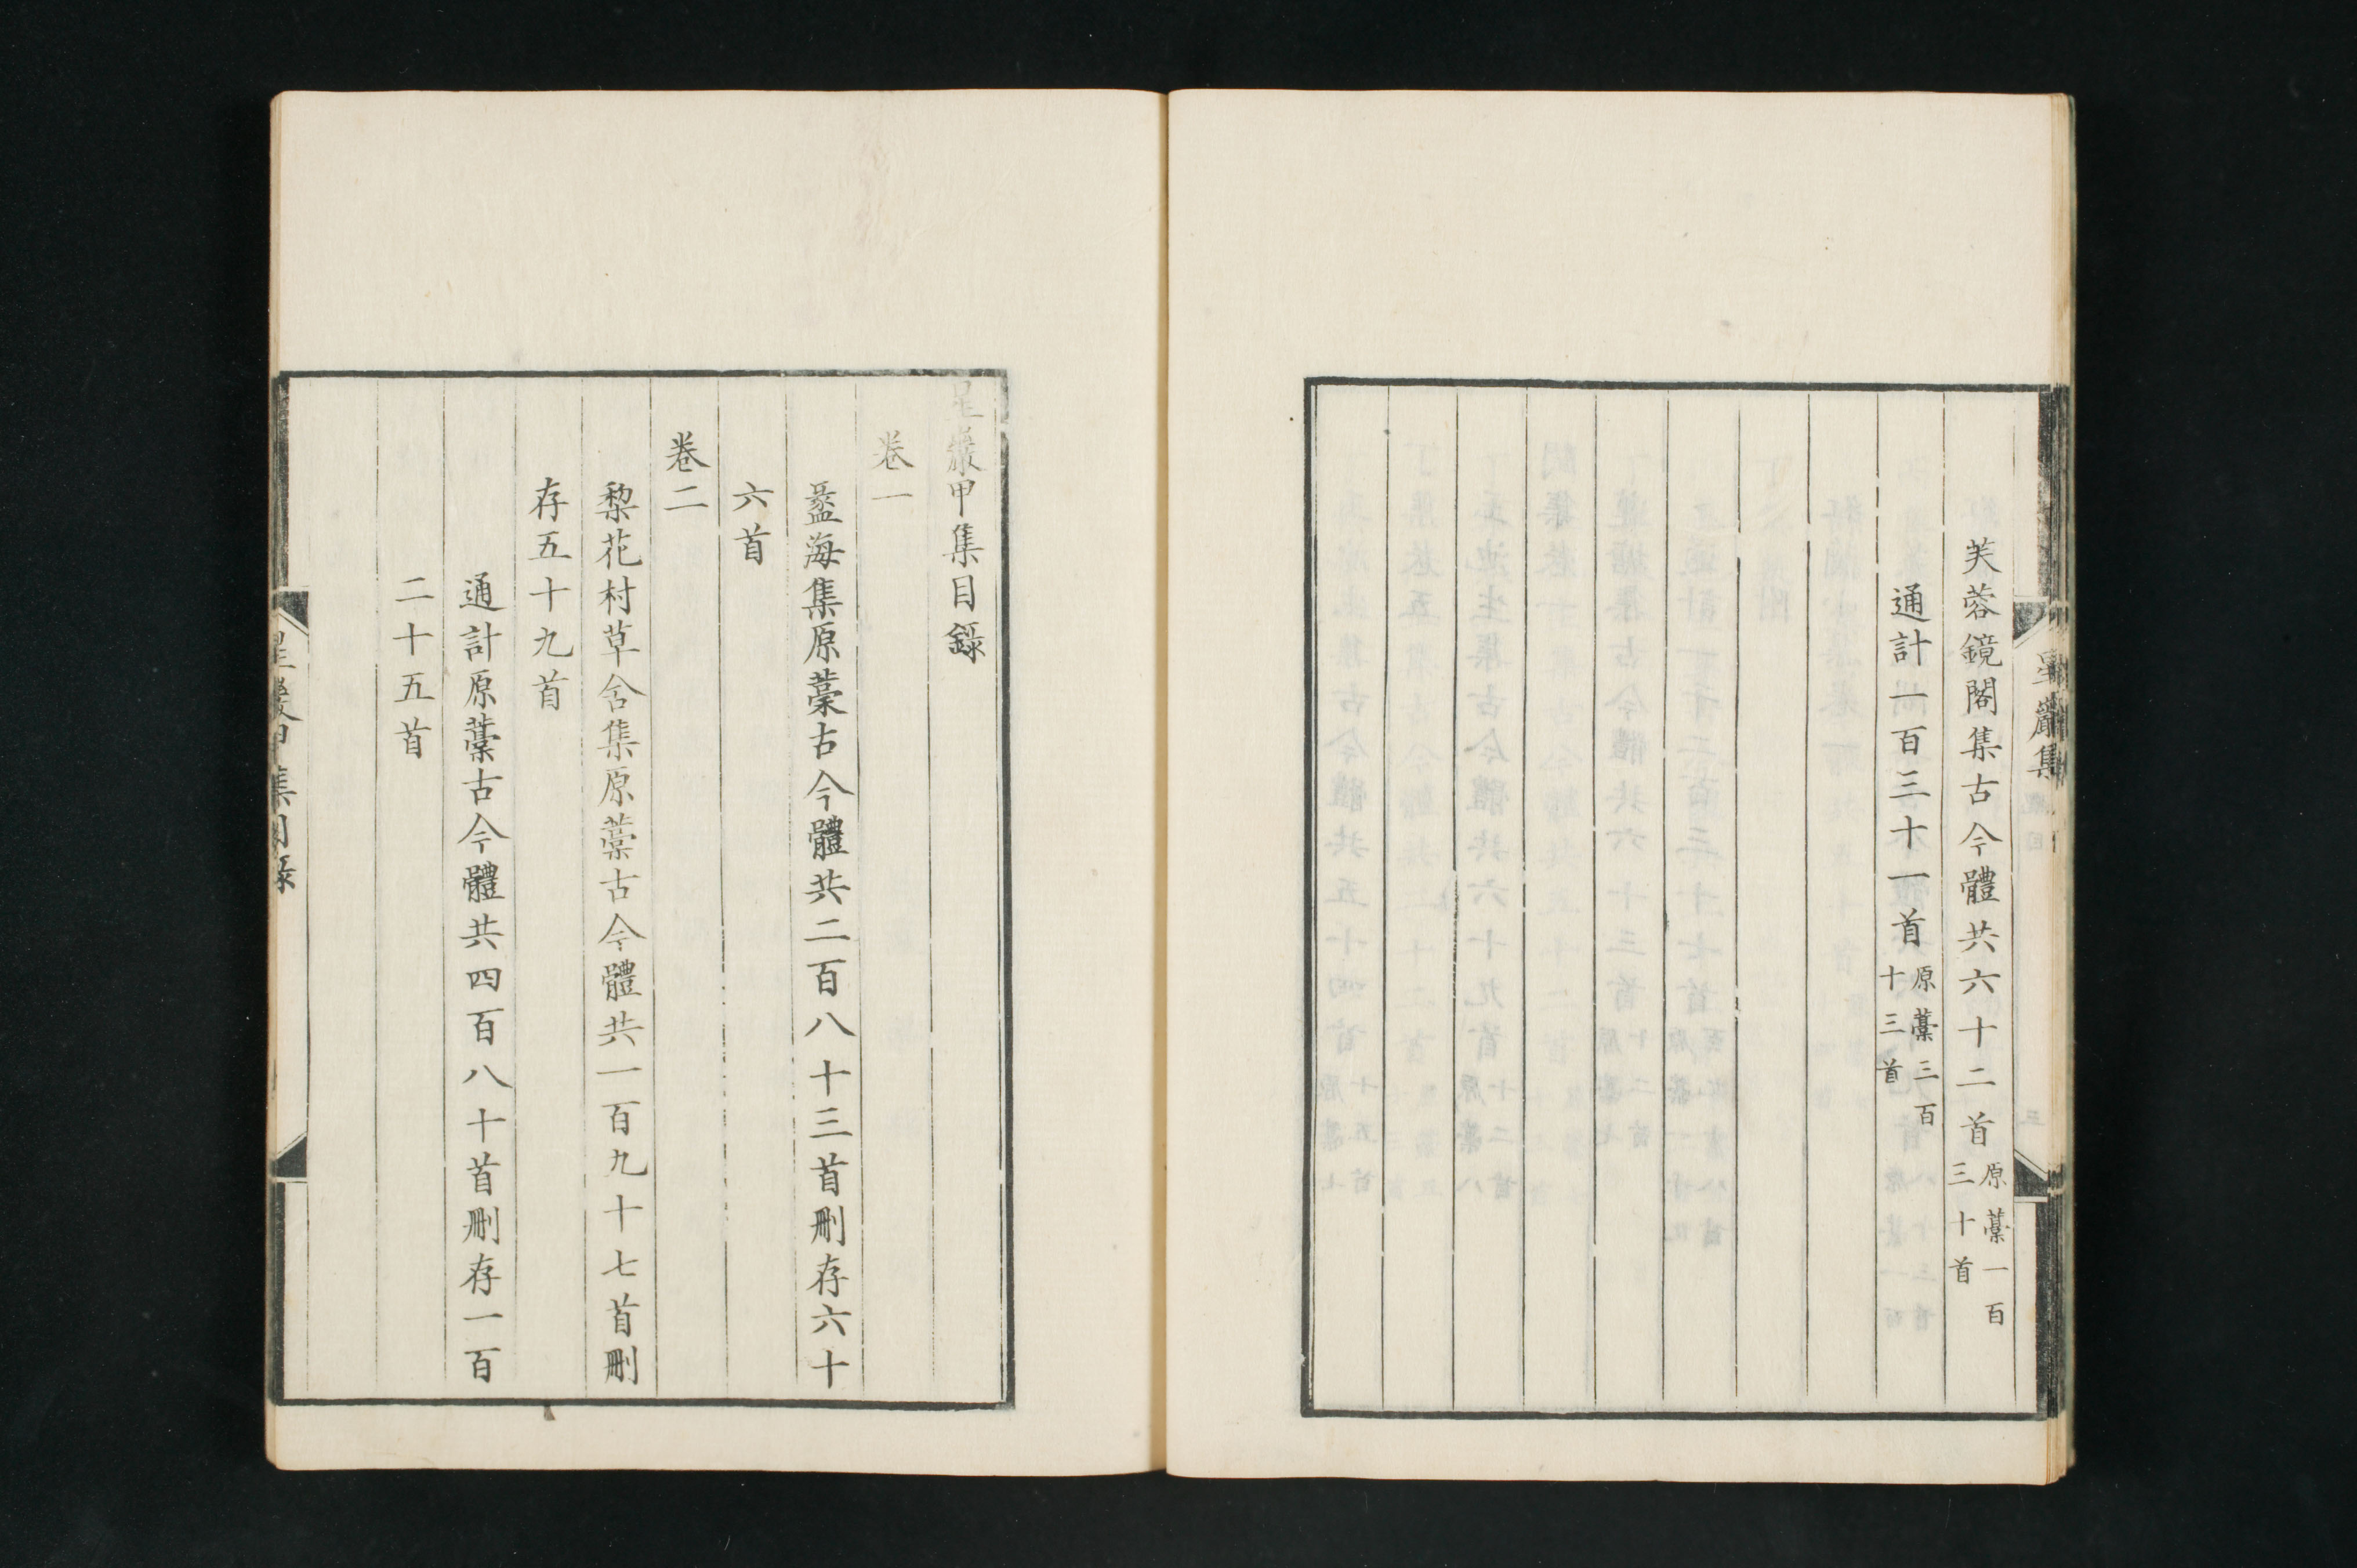 星巖集
芙蓉鏡閣集古今體共六十二首原藁一百三十首
通計一百三十一首原藁三百十三首
星巖甲集目錄
卷一
蠡海集原藁古今體共二百八十三首刪存六十
六首
卷二
梨花村草舍集原藁古今體共一百九十七首刪
存五十九首
通計原藁古今體共四百八十首刪存一百
二十五首
星巖甲集目錄